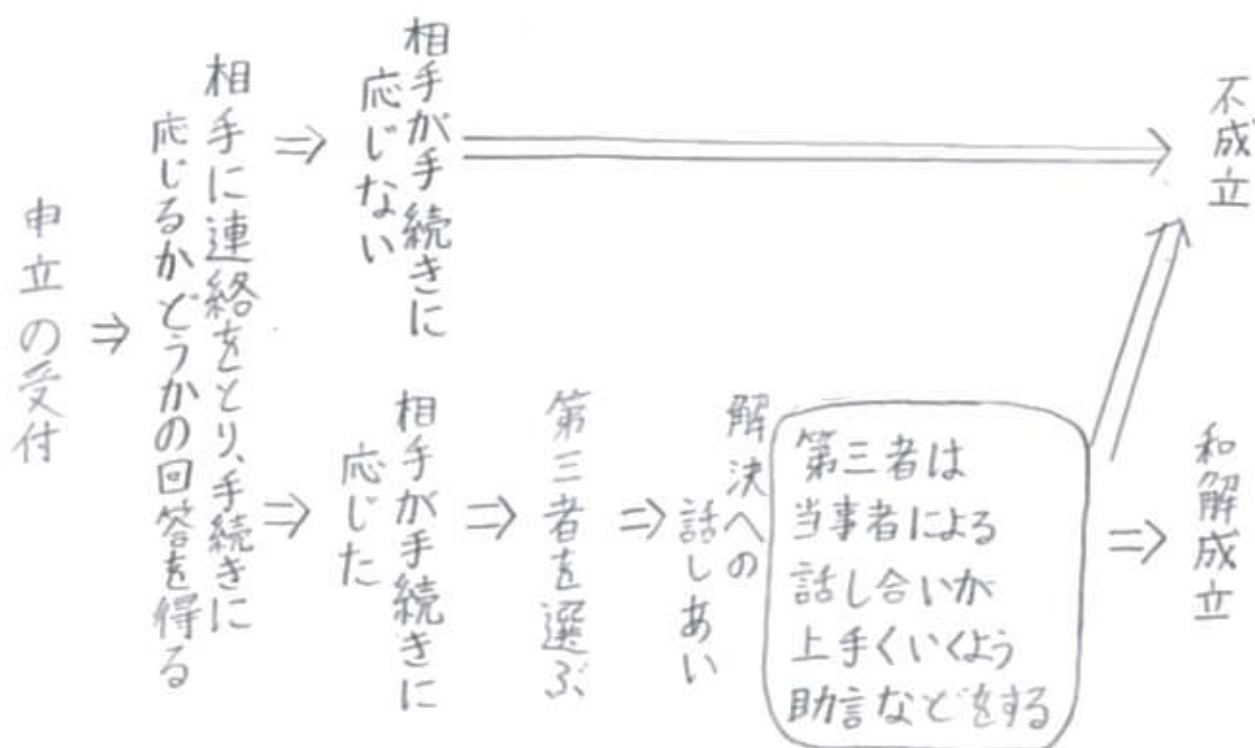 申立の受付
⇒
相手に連絡をとり、手続きに
応じるかどうかの回答を得る
⇒
相手が手続きに
応じない
不成立
⇒
相手が手続きに
応じた
⇒
第三者を選ぶ
⇒
解決への
話しあい
第三者は
当事者による
話し合いが
上手くいくよう
助言などをする
⇒
和解成立